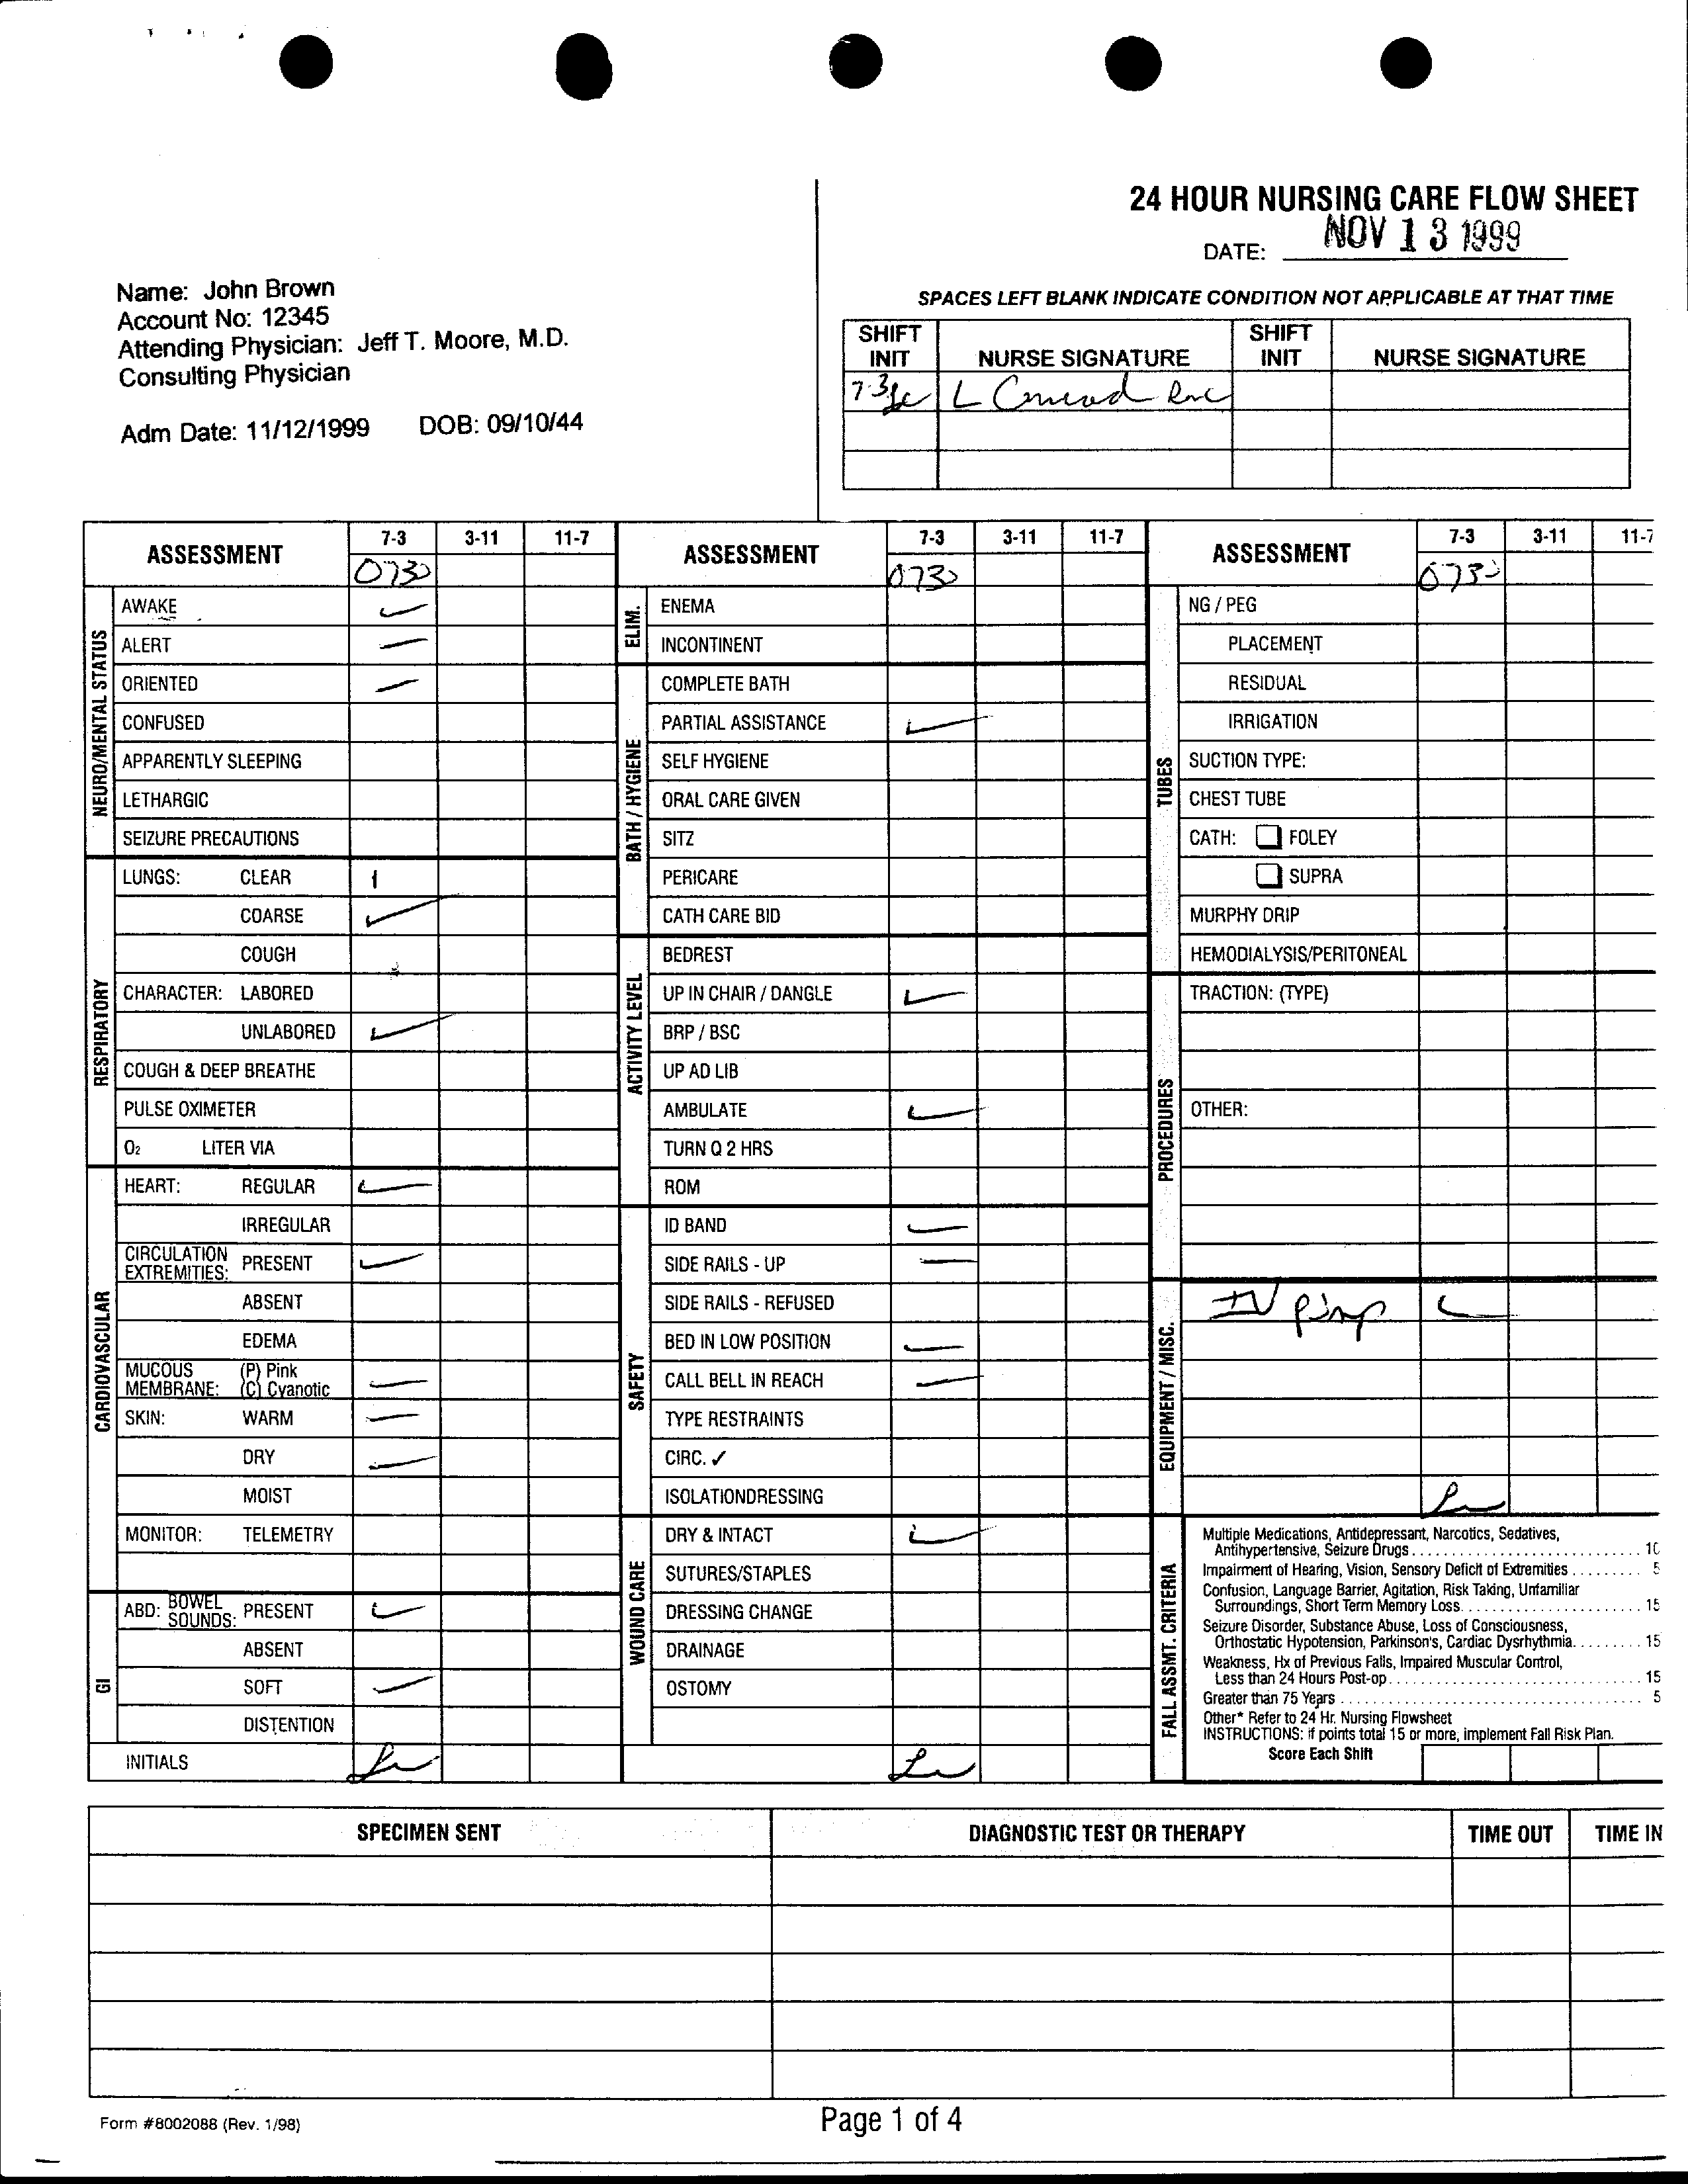 24 HOUR NURSING CARE FLOW SHEET
DATE: NOV 13 1999
Name: John Brown
Account No: 12345
Attending Physician: Jeff T. Moore, M.D.
Consulting Physician
Adm Date: 11/12/1999 DOB: 09/10/44
SPACES LEFT BLANK INDICATE CONDITION NOT APPLICABLE AT THAT TIME
SHIFT INIT NURSE SIGNATURE SHIFT INIT NURSE SIGNATURE
7-3 L
ASSESSMENT 7-3 3-11 11-7
0730
NEURO/MENTAL STATUS
AWAKE ✓
ALERT ✓
ORIENTED ✓
CONFUSED
APPARENTLY SLEEPING
LETHARGIC
SEIZURE PRECAUTIONS
RESPIRATORY
LUNGS: CLEAR
COARSE ✓
COUGH
CHARACTER: LABORED
UNLABORED ✓
COUGH & DEEP BREATHE
PULSE OXIMETER
O2 LITER VIA
CARDIOVASCULAR
HEART: REGULAR ✓
IRREGULAR
CIRCULATION EXTREMITIES: PRESENT ✓
ABSENT
EDEMA
MUCOUS MEMBRANE: (P) Pink (C) Cyanotic ✓
SKIN: WARM ✓
DRY ✓
MOIST
MONITOR: TELEMETRY
GI
ABD: BOWEL SOUNDS: PRESENT ✓
ABSENT
SOFT ✓
DISTENTION
INITIALS
ASSESSMENT 7-3 3-11 11-7
0730
ELIM.
ENEMA
INCONTINENT
BATH / HYGIENE
COMPLETE BATH
PARTIAL ASSISTANCE ✓
SELF HYGIENE
ORAL CARE GIVEN
SITZ
PERICARE
CATH CARE BID
ACTIVITY LEVEL
BEDREST
UP IN CHAIR / DANGLE ✓
BRP / BSC
UP AD LIB
AMBULATE ✓
TURN Q 2 HRS
ROM
SAFETY
ID BAND ✓
SIDE RAILS - UP ✓
SIDE RAILS - REFUSED
BED IN LOW POSITION ✓
CALL BELL IN REACH ✓
TYPE RESTRAINTS
CIRC. ✓
ISOLATIONDRESSING
WOUND CARE
DRY & INTACT ✓
SUTURES/STAPLES
DRESSING CHANGE
DRAINAGE
OSTOMY
ASSESSMENT 7-3 3-11 11-7
0730
TUBES
NG / PEG
PLACEMENT
RESIDUAL
IRRIGATION
SUCTION TYPE:
CHEST TUBE
CATH: ☐ FOLEY
☐ SUPRA
MURPHY DRIP
HEMODIALYSIS/PERITONEAL
PROCEDURES
TRACTION: (TYPE)
OTHER:
EQUIPMENT / MISC.
IV pump ✓
FALL ASSMT. CRITERIA
Multiple Medications, Antidepressant, Narcotics, Sedatives,
Antihypertensive, Seizure Drugs 10
Impairment of Hearing, Vision, Sensory Deficit of Extremities 5
Confusion, Language Barrier, Agitation, Risk Taking, Unfamiliar
Surroundings, Short Term Memory Loss 15
Seizure Disorder, Substance Abuse, Loss of Consciousness,
Orthostatic Hypotension, Parkinson's, Cardiac Dysrhythmia 15
Weakness, Hx of Previous Falls, Impaired Muscular Control,
Less than 24 Hours Post-op 15
Greater than 75 Years 5
Other* Refer to 24 Hr. Nursing Flowsheet
INSTRUCTIONS: if points total 15 or more, implement Fall Risk Plan.
Score Each Shift
SPECIMEN SENT DIAGNOSTIC TEST OR THERAPY TIME OUT TIME IN
Form #8002088 (Rev. 1/98)
Page 1 of 4